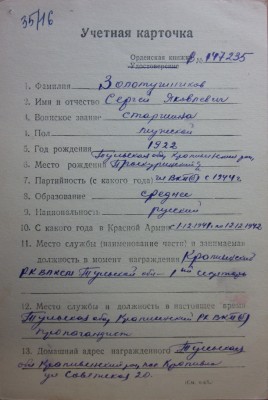 35/16
Учетная карточка
Орденская книжка В № 147235
Удостоверение
1. Фамилия Золотушников
2. Имя и отчество Сергей Яковлевич
4. Воинское звание старшина
4. Пол мужской
5. Год рождения 1922
6. Место рождения Тульская обл, Крапивенский
7. Партийность (с какого года) чл ВКП(б) с 1944 г.
8. Образование среднее
9. Национальность русский
10. С какого года в Красной Армии с 1.12.1941 по 12.12.1942
11. Место службы (наименование части) и занимаемая
должность в момент награждения Крапивенский
РК ВЛКСМ Тульской обл - 1й секретарь
12. Место службы и должность в настоящее время
Тульская обл Крапивенский РК ВКП(б)
пропагандист
13. Домашний адрес награжденного Тульская
обл Крапивенский пос Крапивна
ул Советская 20.